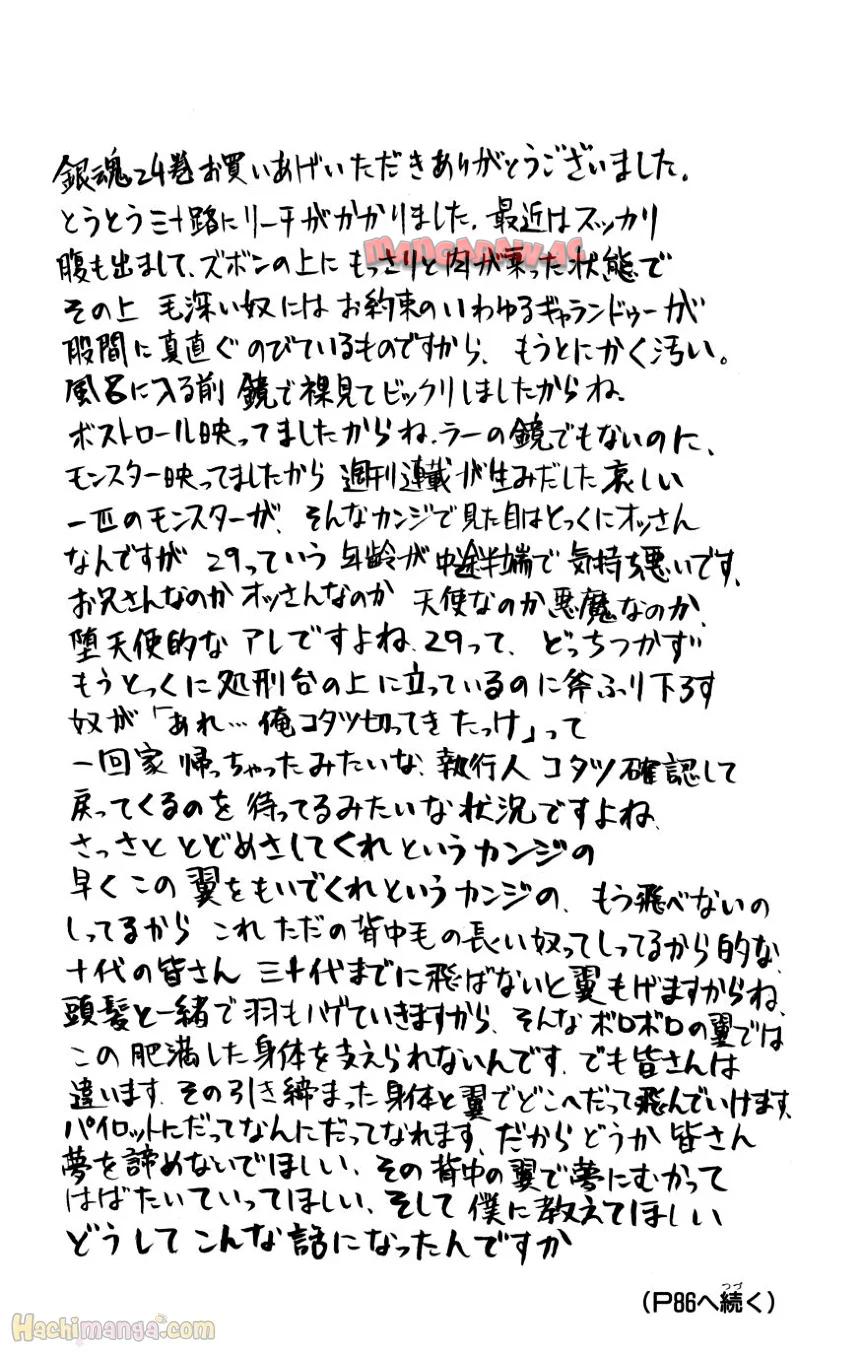 銀魂24巻お買いあげいただきありがとうございました。
とうとう三十路にリーチがかかりました。最近はスッカリ
mangaraw.ac
腹も出まして、ズボンの上にもっさりと肉が乗った状態で
その上 毛深い奴にはお約束のいわゆるギャランドゥーが
股間に真直ぐのびているものですから、もうとにかく汚い。
風呂に入る前 鏡で裸見てビックリしましたからね。
ボストロール映ってましたからね。ラーの鏡でもないのに、
モンスター映ってましたから 週刊連載が生みだした哀しい
一匹のモンスターが、そんなカンジで見た目はとっくにオッさん
なんですが 29っていう年齢が中途半端で気持ち悪いです、
お兄さんなのかオッさんなのか 天使なのか悪魔なのか、
堕天使的なアレですよね、29って、どっちつかず
もうとっくに処刑台の上に立っているのに斧ふり下ろす
奴が「あれ…俺コタツ切ってきたっけ」って
一回家帰っちゃったみたいな、執行人コタツ確認して
戻ってくるのを待ってるみたいな状況ですよね、
さっさととどめさしてくれというカンジの
早くこの翼をもいでくれというカンジの、もう飛べないの
しってるから これただの背中毛の長い奴ってしってるから的な、
十代の皆さん 三十代までに飛ばないと翼もげますからね、
頭髪と一緒で羽もハゲていきますから、そんなボロボロの翼では
この肥満した身体を支えられないんです、でも皆さんは
違います、その引き締まった身体と翼でどこへだって飛んでいけます、
パイロットにだってなんにだってなれます、だからどうか皆さん
夢を諦めないでほしい、その背中の翼で夢にむかって
はばたいていってほしい、そして僕に教えてほしい
どうしてこんな話になったんですか
(P86へ続く)
つづ
Hachimanga.com